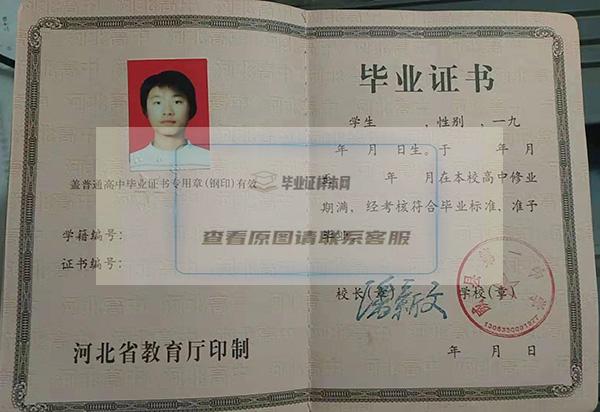 盖普通高中毕业证书专用章(钢印)有效
学籍编号：
证书编号：
河北省教育厅印制
毕业证书
学生　　　，性别　，一九
年　月　日生。于　　年　月
至　　年　月在本校高中修业
期满，经考核符合毕业标准，准予
毕业。
校长(章)
学校(章)
年　月　日
毕业证样本网
查看原图请联系客服